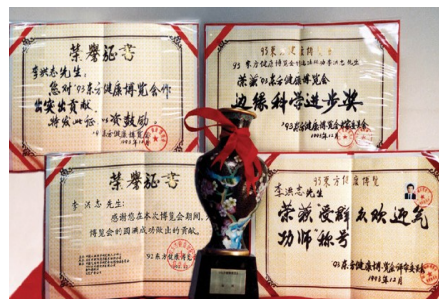 荣誉证书
李洪志先生：
您对'93东方健康博览会作
出突出贡献，
特发此证以资鼓励。
'93东方健康博览会
1993年12月
93东方健康博览会
荣获'93东方健康博览会
边缘科学进步奖
'93东方健康博览会
1993年12月
荣誉证书
李洪志先生：
感谢您在本次博览会期间，
博览会的圆满成功做出的贡献。
93东方健康博览
李洪志先生
荣获"受群众欢迎气
功师"称号
93东方健康博览会评审委员会
1993年12月